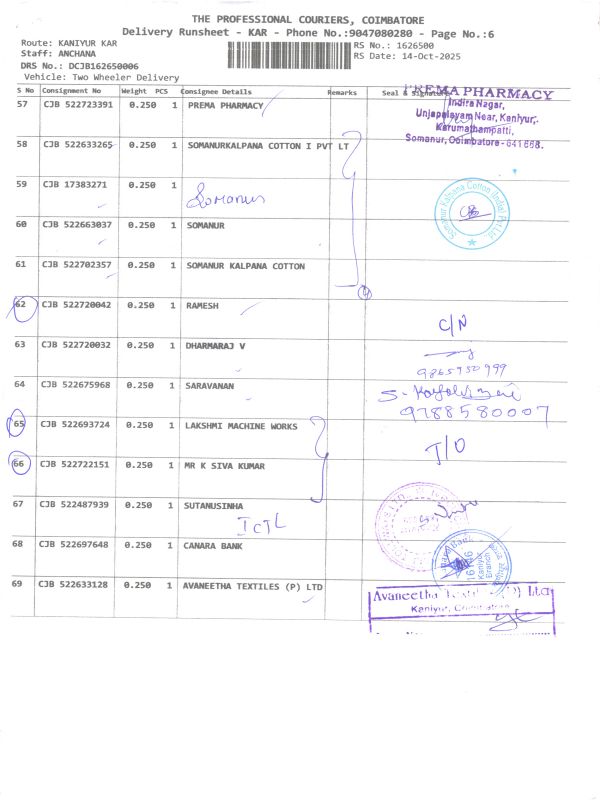 THE PROFESSIONAL COURIERS, COIMBATORE
Delivery Runsheet - KAR - Phone No.:9047080280 - Page No.:6
Route: KANIYUR KAR
Staff: ANCHANA
DRS No.: DCJB162650006
Vehicle: Two Wheeler Delivery
RS No.: 1626500
RS Date: 14-Oct-2025
S No Consignment No Weight PCS Consignee Details Remarks Seal & Signature
57 CJB 522723391 0.250 1 PREMA PHARMACY
PREMA PHARMACY
Indira Nagar,
Unjapalayam Near, Kaniyur,
Karumathampatti,
Somanur, Coimbatore - 641 668.
58 CJB 522633265 0.250 1 SOMANURKALPANA COTTON I PVT LT
59 CJB 17383271 0.250 1
Somanur
Somanur Kalpana Cotton (India) Pvt Ltd
60 CJB 522663037 0.250 1 SOMANUR
61 CJB 522702357 0.250 1 SOMANUR KALPANA COTTON
4
62 CJB 522720042 0.250 1 RAMESH
C/N
63 CJB 522720032 0.250 1 DHARMARAJ V
64 CJB 522675968 0.250 1 SARAVANAN
9788580007
65 CJB 522693724 0.250 1 LAKSHMI MACHINE WORKS
66 CJB 522722151 0.250 1 MR K SIVA KUMAR
T/O
67 CJB 522487939 0.250 1 SUTANUSINHA
68 CJB 522697648 0.250 1 CANARA BANK
Kaniyur
Branch
69 CJB 522633128 0.250 1 AVANEETHA TEXTILES (P) LTD
Avaneetha Textiles (P) Ltd
Kaniyur, Coimbatore